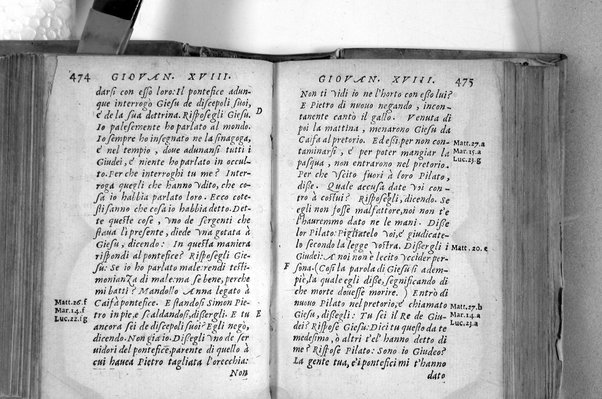 474 GIOVAN. XVIII.
darsi con esso loro: Il pontefice adun-
que interrogò Giesu de discepoli suoi,
e de la sua dottrina. Rispose gli Giesu. D
Io palesemente ho parlato al mondo.
Io sempre ho insegnato ne la sinagoga,
e nel tempio, doue adunansi tutti i
Giudei, e niente ho parlato in occul-
to. Per che interroghi tu me? Inter-
roga quegli che hanno vdito, che co-
sa io habbia parlato loro. Ecco cote-
sti sanno che cosa io habbia detto. Det-
te queste cose, vno de sergenti che
staua lì presente, diede vna gotata à
Giesu, dicendo: In questa maniera
rispondi al pontefice? Risposegli Gie-
su: Se io ho parlato male: rendi testi-
monianza di male: ma se bene, perche
mi batti? Mandollo Anna legato à
Matt. 26. f Caifà pontefice. E standosi Simon Pie-
Mar. 14. f tro in pie, e scaldandosi, dissergli. E tu E
Luc. 22. g ancora sei de discepoli suoi? Egli negò,
dicendo. Non gia io. Dissegli vno de ser
uidori del pontefice, parente di quello à
cui haueа Pietro tagliata l'orecchia:
Non
GIOVAN. XVIII. 475
Non ti vidi io ne l'horto con esso lui?
E Pietro di nuouo negando, incon-
tanente cantò il gallo. Venuta di
poi la mattina, menarono Giesu da
Caifa al pretorio. Ed essi per non con- Matt. 27. a
taminarsi, e per poter mangiar la Mar. 15. a
pasqua, non entrarono nel pretorio. Luc. 23. g
Per che vscito fuori à loro Pilato,
disse. Quale accusa date voi con-
tro à costui? Risposegli, dicendo. Se
egli non fosse malfattore, noi non t'e
l'hauremmo dato ne le mani. Disse
lor Pilato: Pigliatelo voi, e giudicate-
lo secondo la legge vostra. Dissergli i Matt. 20. c
Giudei: A noi non è lecito vccider per-
F sona. (Cosi la parola di Giesu si adem-
piè, la quale egli disse, significando di
che morte douesse morire.) Entrò di
nuouo Pilato nel pretorio, e chiamato Matt. 27. b
Giesu, dissegli: Tu sei il Re de Giu- Mar. 14. a
dei? Rispose Giesu: Dici tu questo da te Luc. 23. a
medesimo, ò altri t'el hanno detto di
me? Rispose Pilato: Sono io Giudeo?
La gente tua, e i pontefici mi t'hanno
dato